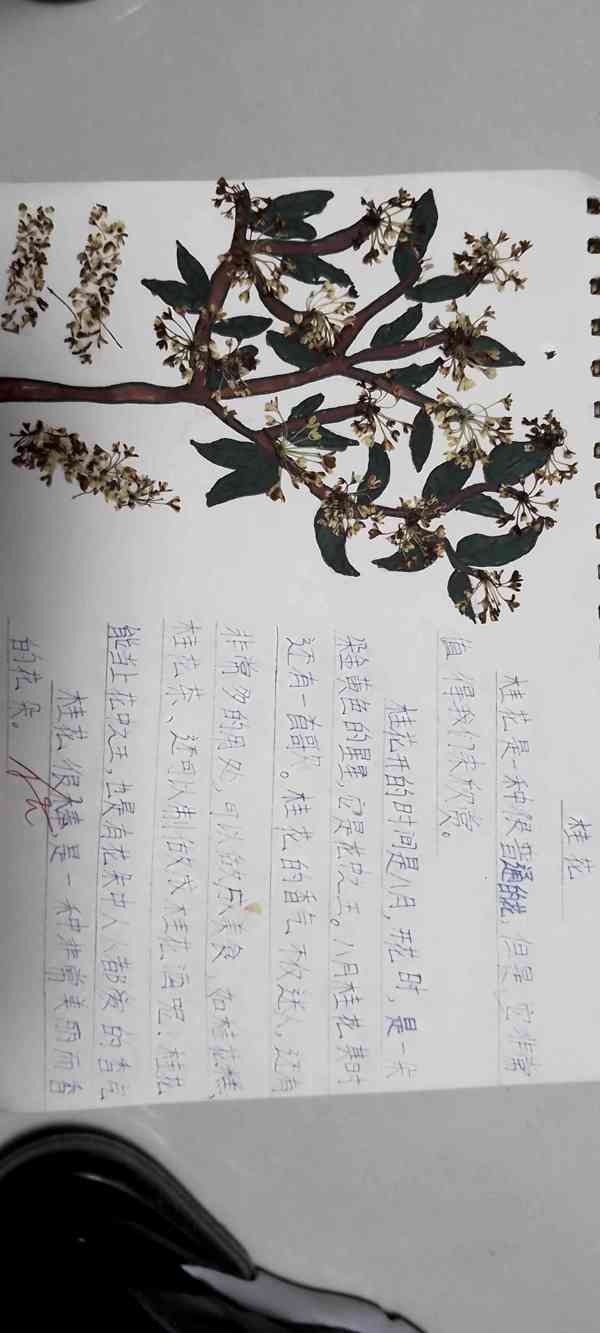 桂花
桂花是一种很普通的花,但是,它非常
值得我们去欣赏。
桂花开的时间是八月,开花时,是一大
朵金黄色的星星,它是花中之王。八月桂花其时
还有一首歌。桂花的香气不仅迷人,还有
非常多的用处,可以做成美食,如桂花糕、
桂花茶、还可以制做成桂花酒呢!桂花
能当上花中之王,也是有花朵中人人都爱的香气
桂花很棒是一种非常美丽而香
的花朵。